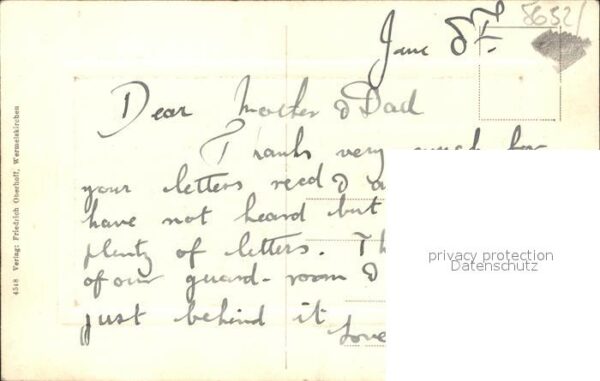 8632/
June 8th
Dear Mother & Dad
Thanks very much for
your letters recd &
have not heard but
plenty of letters. Th
of our guard-room &
just behind it
Love
privacy protection
Datenschutz
4548 Verlag: Friedrich Oberhoff, Wermelskirchen